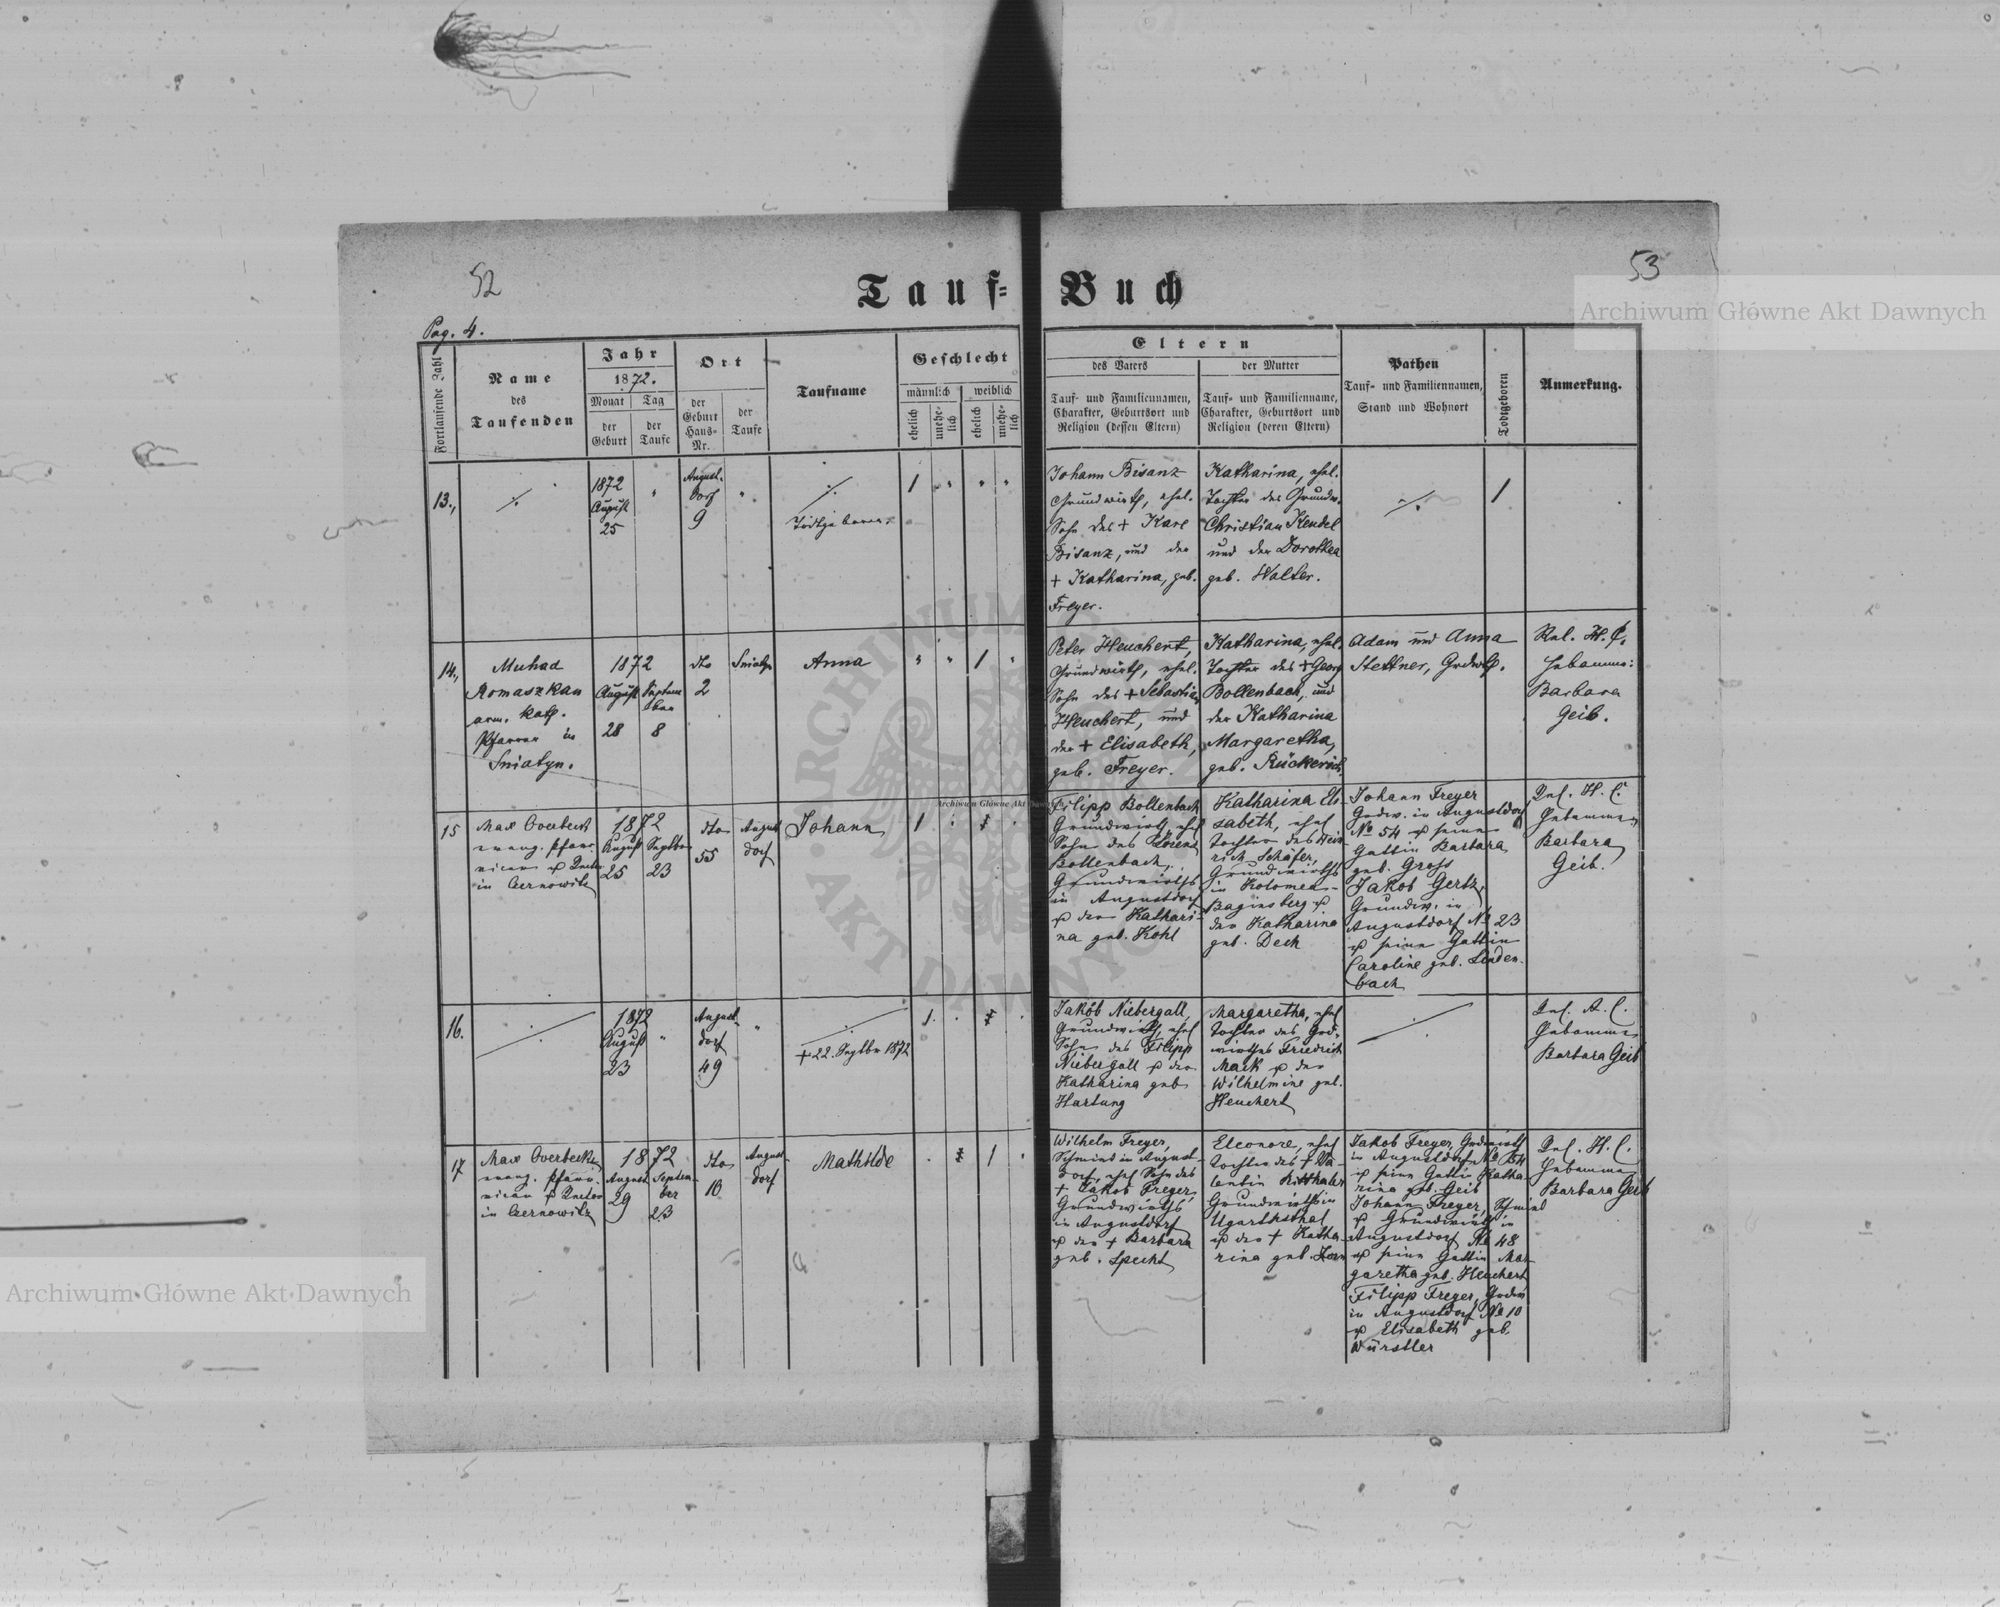 52
53
Tauf-Buch
Archiwum Główne Akt Dawnych
Pag. 4.
Fortlaufende Zahl
Name
des
Taufenden
Jahr
1872.
Monat
Tag
der
Geburt
der
Taufe
Ort
der
Geburt
Haus-
Nr.
der
Taufe
Taufname
Geschlecht
männlich
weiblich
ehelich
unehe-
lich
ehelich
unehe-
lich
Eltern
des Vaters
Tauf- und Familiennamen,
Charakter, Geburtsort und
Religion (dessen Eltern)
der Mutter
Tauf- und Familienname,
Charakter, Geburtsort und
Religion (deren Eltern)
Pathen
Tauf- und Familiennamen,
Stand und Wohnort
Todtgeboren
Anmerkung.
13.,
1872
August
25
August-
dorf
9
Todtgeboren.
1
Johann Bisanz
Grundwirth, ehel.
Sohn des + Karl
Bisanz, und der
+ Katharina, geb.
Freyer.
Katharina, ehel.
Tochter des Grundw.
Christian Kendel
und der Dorothea
geb. Walter.
1
14.,
Muhad
Romaszkan
arm. kath.
Pfarrer in
Sniatyn.
1872
August
28
Septem
ber
8
dto
2
Sniatyn
Anna
1
Peter Heuchert,
Grundwirth, ehel.
Sohn des + Sebastian
Heuchert, und
der + Elisabeth,
geb. Freyer.
Katharina, ehel.
Tochter des + Georg
Bollenbach, und
der Katharina
Margaretha,
geb. Rückerich.
Adam und Anna
Stettner, Grdwth.
Rel. H. C.
Hebamme:
Barbara
Geib.
15
Max Overbeck
evang. Pfarr-
vicar & Rector
in Czernowitz
1872
August
25
Septbr
23
dto
55
August
dorf
Johann
1
Filipp Bollenbach
Grundwirth, ehel
Sohn des Lorenz
Bollenbach,
Grundwirths
in Augustdorf
& der Kathari-
na geb. Kohl
Katharina Eli-
sabeth, ehel
Tochter des Hein-
rich Schäfer,
Grundwirths
in Kolomea-
Baginsberg &
der Katharina
geb. Dech
Johann Freyer
Grdw. in Augustdorf
No 54 & seine
Gattin Barbara
geb. Gross
Jakob Gertz,
Grundw. in
Augustdorf No 23
& seine Gattin
Caroline geb. Linden-
bach
Rel. H. C.
Hebamme
Barbara
Geib.
16.
1872
August
23
August-
dorf
49
+ 22. Septbr 1872
1
Jakob Niebergall,
Grundwirth, ehel
Sohn des Filipp
Niebergall & der
Katharina geb
Hartung
Margaretha, ehel
Tochter des Grd-
wirthes Friedrich
Mack & der
Wilhelmine geb.
Heuchert
Rel. A. C.
Hebamme
Barbara Geib
17
Max Overbeck
evang. Pfarr-
vicar & Rector
in Czernowitz
1872
August
29
Septem-
ber
23
dto
10
August-
dorf
Mathilde
1
Wilhelm Freyer,
Schmied in August-
dorf, ehel Sohn des
+ Jakob Freyer,
Grundwirths
in Augustdorf
& der + Barbara
geb. Specht
Eleonore, ehel
Tochter des + Va-
lentin Ritthaler
Grundwirths in
Ugartsthal
& der + Katha-
rina geb.
Jakob Freyer, Grdwirth
in Augustdorf No 54
& seine Gattin Katha-
rina geb. Geib
Johann Freyer, Schmied
& Grundwirth in
Augustdorf No 48
& seine Gattin Mar-
garetha geb. Heuchert
Filipp Freyer, Grdw
in Augustdorf No 10
& Elisabeth geb.
Würstler
Rel. H. C.
Hebamme
Barbara Geib
Archiwum Główne Akt Dawnych
ARCHIWUM
AKT DAWNYCH
Archiwum Główne Akt Dawnych